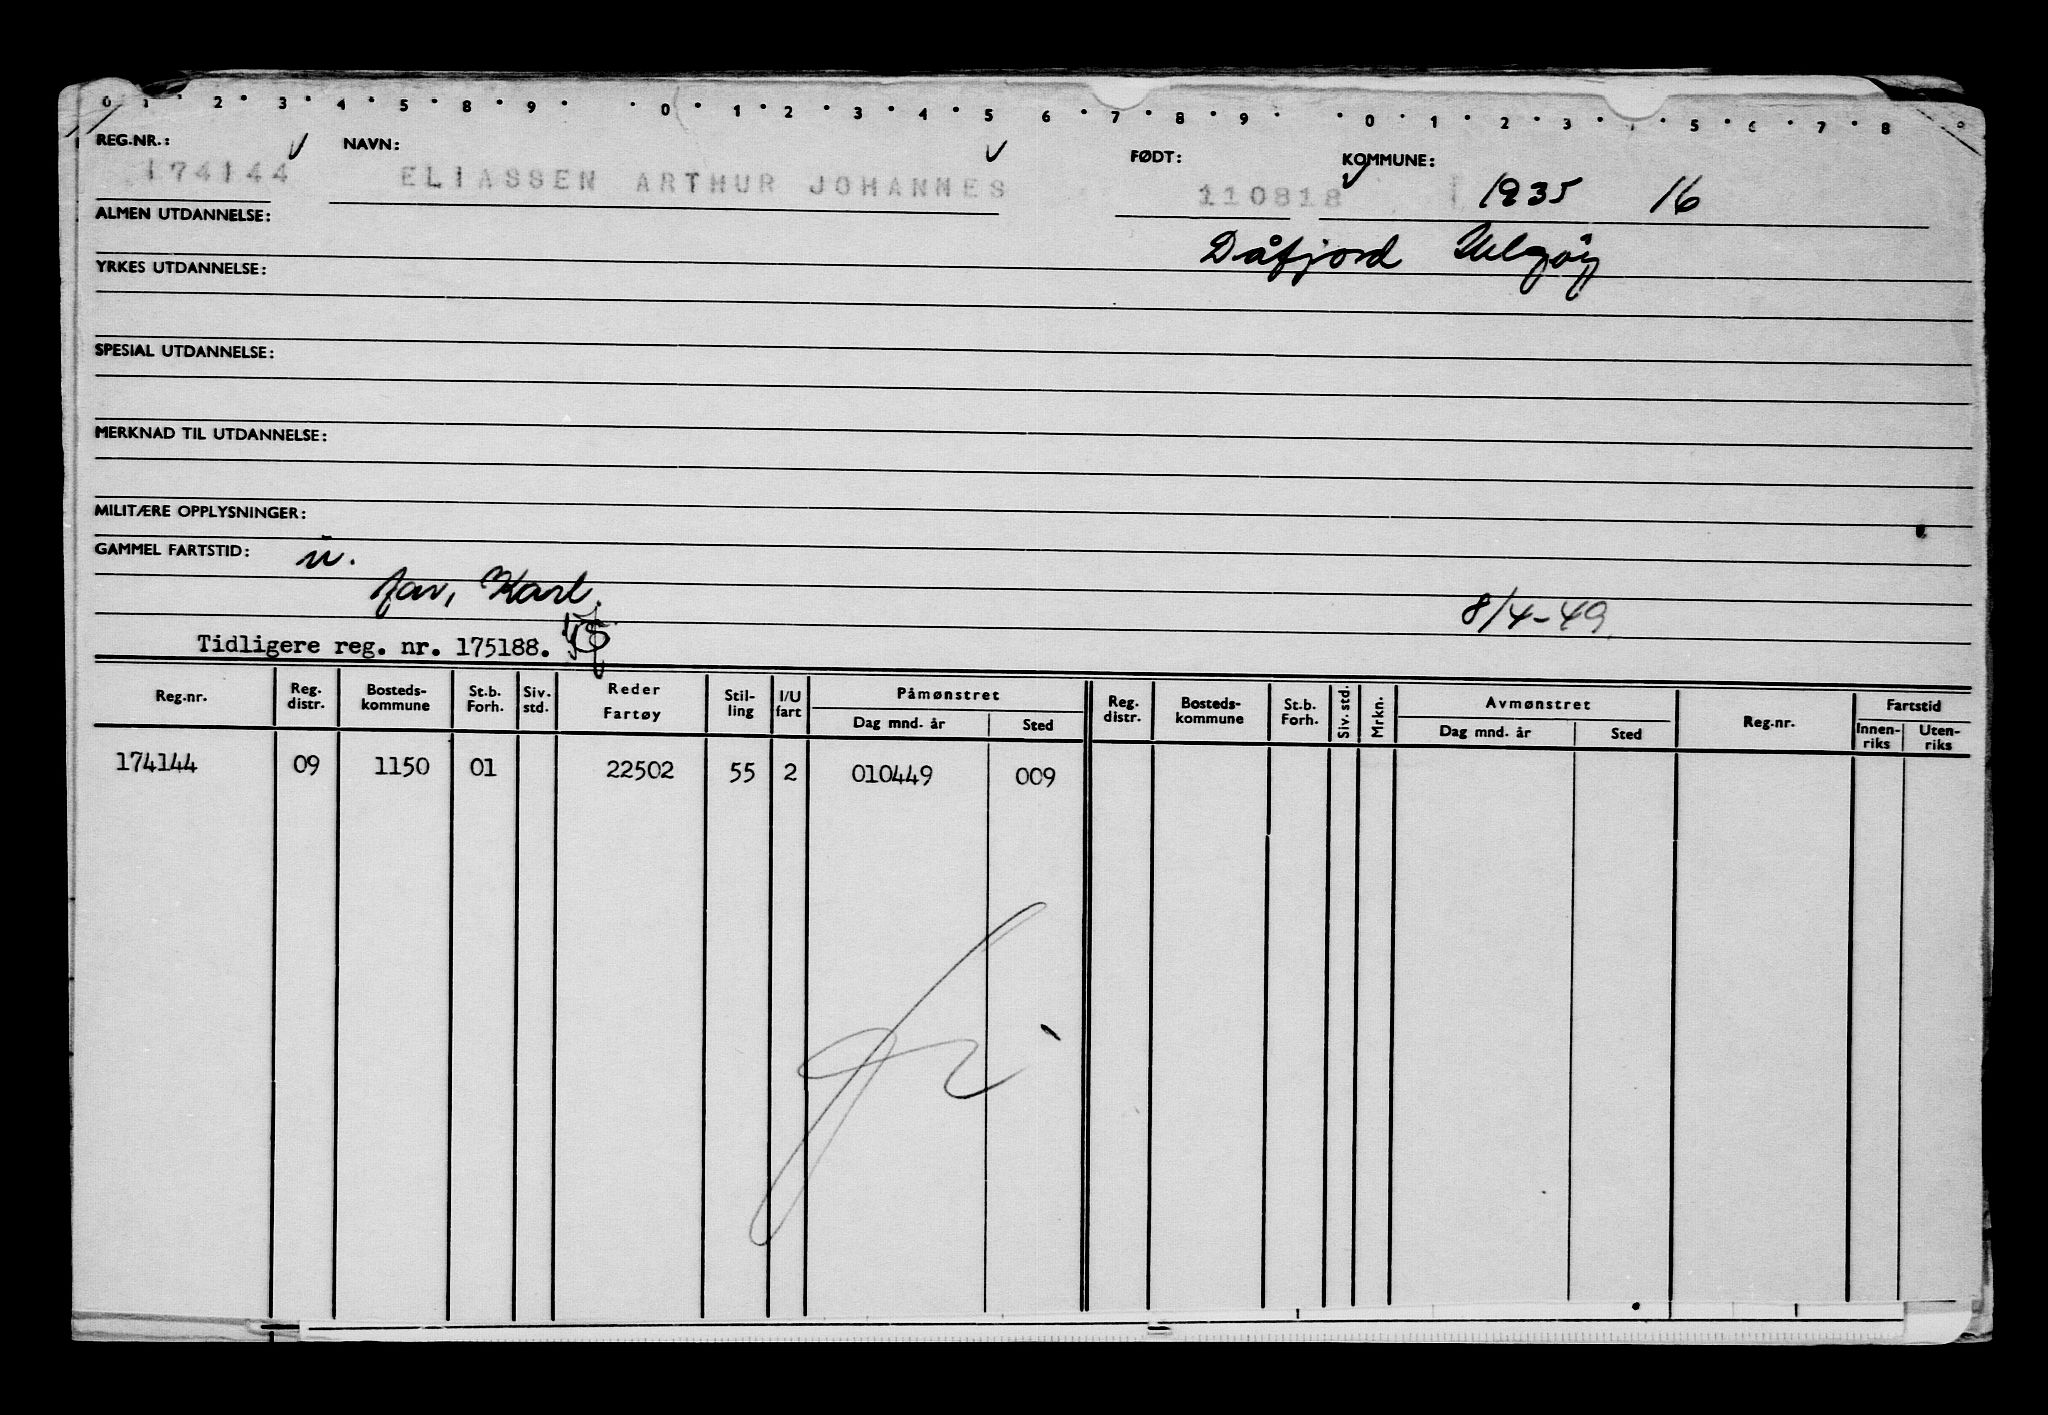 0 1 2 3 4 5 6 8 9 0 1 2 3 4 5 6 7 8 9 0 1 2 3 5 6 7 8
REG.NR.: NAVN: FØDT: KOMMUNE:
174144 ELIASSEN ARTHUR JOHANNES 110818 1935 16
ALMEN UTDANNELSE: Dåfjord Helgøy
YRKES UTDANNELSE:
SPESIAL UTDANNELSE:
MERKNAD TIL UTDANNELSE:
MILITÆRE OPPLYSNINGER:
GAMMEL FARTSTID: u.
far, Karl. 8/4-49.
Tidligere reg. nr. 175188.
Reg.nr. Reg. distr. Bosteds-kommune St.b. Forh. Siv. std. Reder Fartøy Stil-ling I/U fart Påmønstret Dag mnd. år Sted Reg. distr. Bosteds-kommune St.b. Forh. Siv. std. Mrkn. Avmønstret Dag mnd. år Sted Reg.nr. Fartstid Innen-riks Uten-riks
174144 09 1150 01 22502 55 2 010449 009